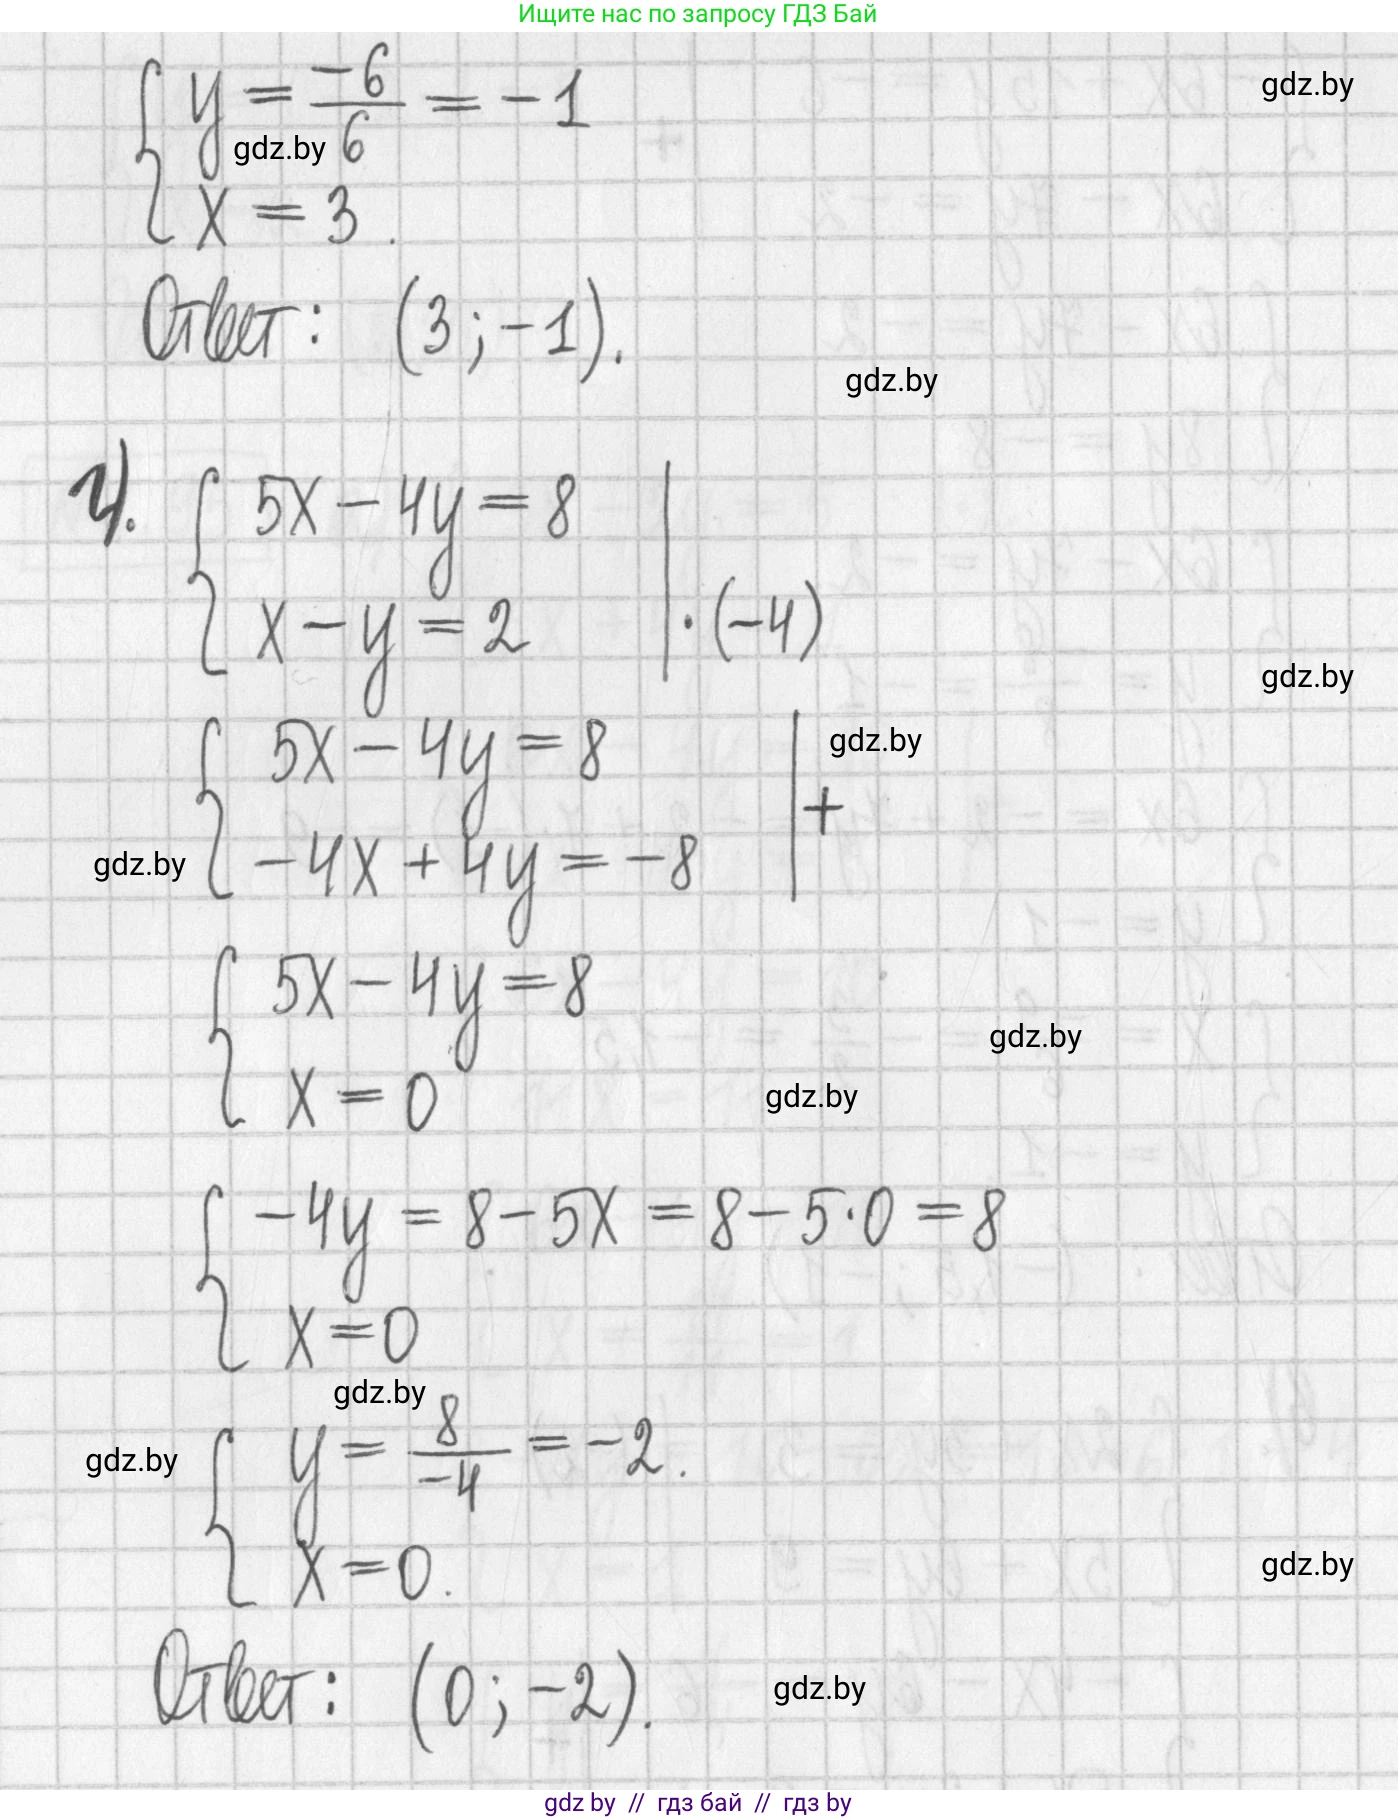 Ищите нас по запросу ГДЗ Бай
gdz.by
y = -6/6 = -1
gdz.by
x = 3.
Ответ: (3; -1).
gdz.by
г).
5x - 4y = 8
x - y = 2 | · (-4)
gdz.by
5x - 4y = 8
gdz.by
+
-4x + 4y = -8
gdz.by
5x - 4y = 8
gdz.by
x = 0
gdz.by
-4y = 8 - 5x = 8 - 5·0 = 8
x = 0
gdz.by
y = 8/-4 = -2.
gdz.by
x = 0.
gdz.by
Ответ: (0; -2).
gdz.by
gdz by // гдз бай // гдз by